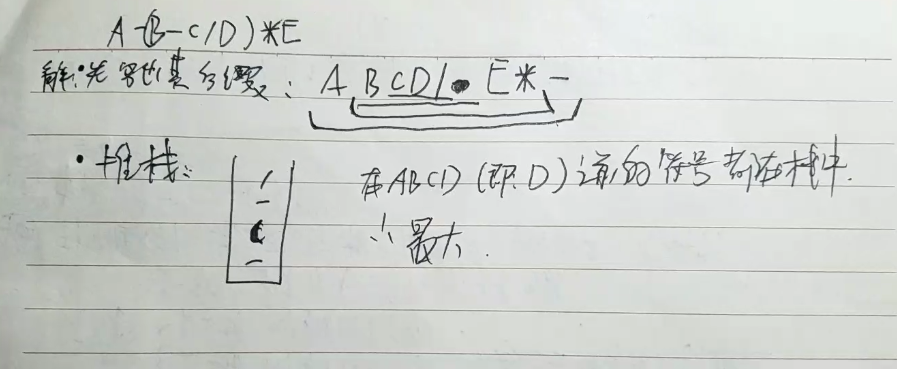 A-(B-C/D)*E
解:先写出其后缀: A B C D / • E * -
• 堆栈: / - ( -
在ABCD(即D)之前的符号都在栈中.
∴最大.